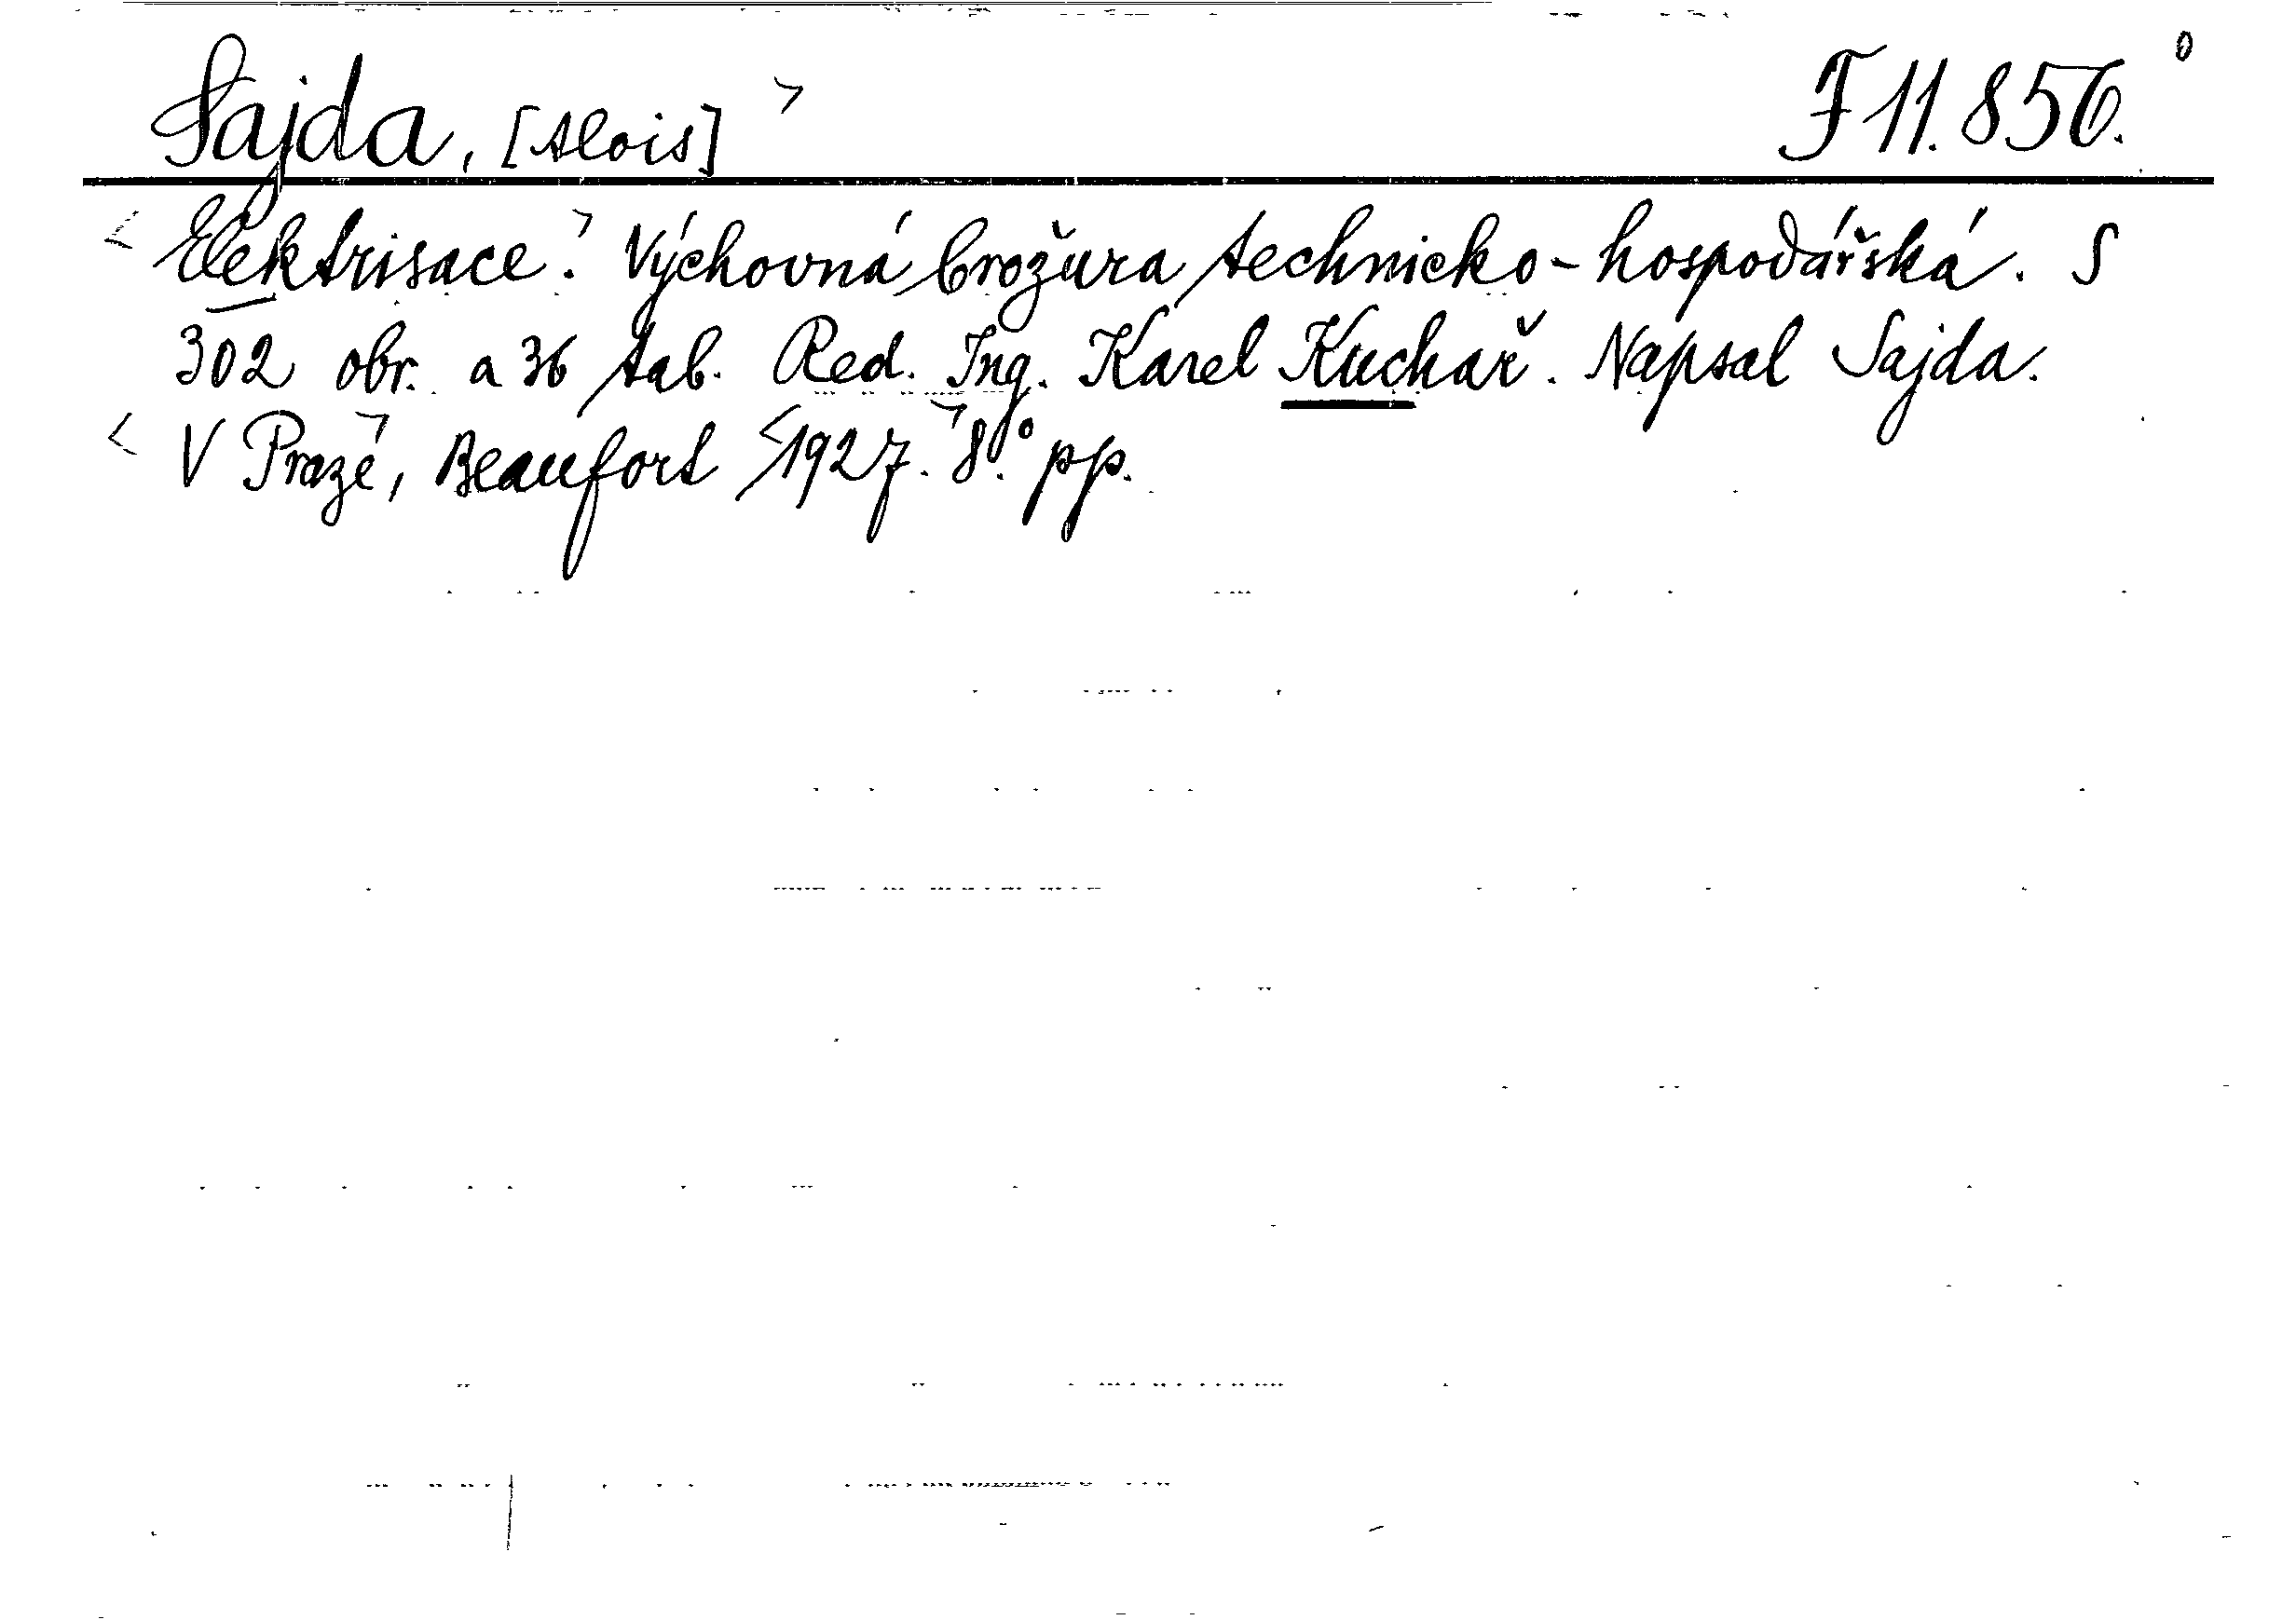 Sajda, [Alois] F 11.856.
Elektrisace. Výchovná brožura technicko-hospodářská. S
302 obr. a 36 tab. Red. Ing. Karel Kuchař. Napsal Sajda.
V Praze, Beaufort 1927. 8.° pp.